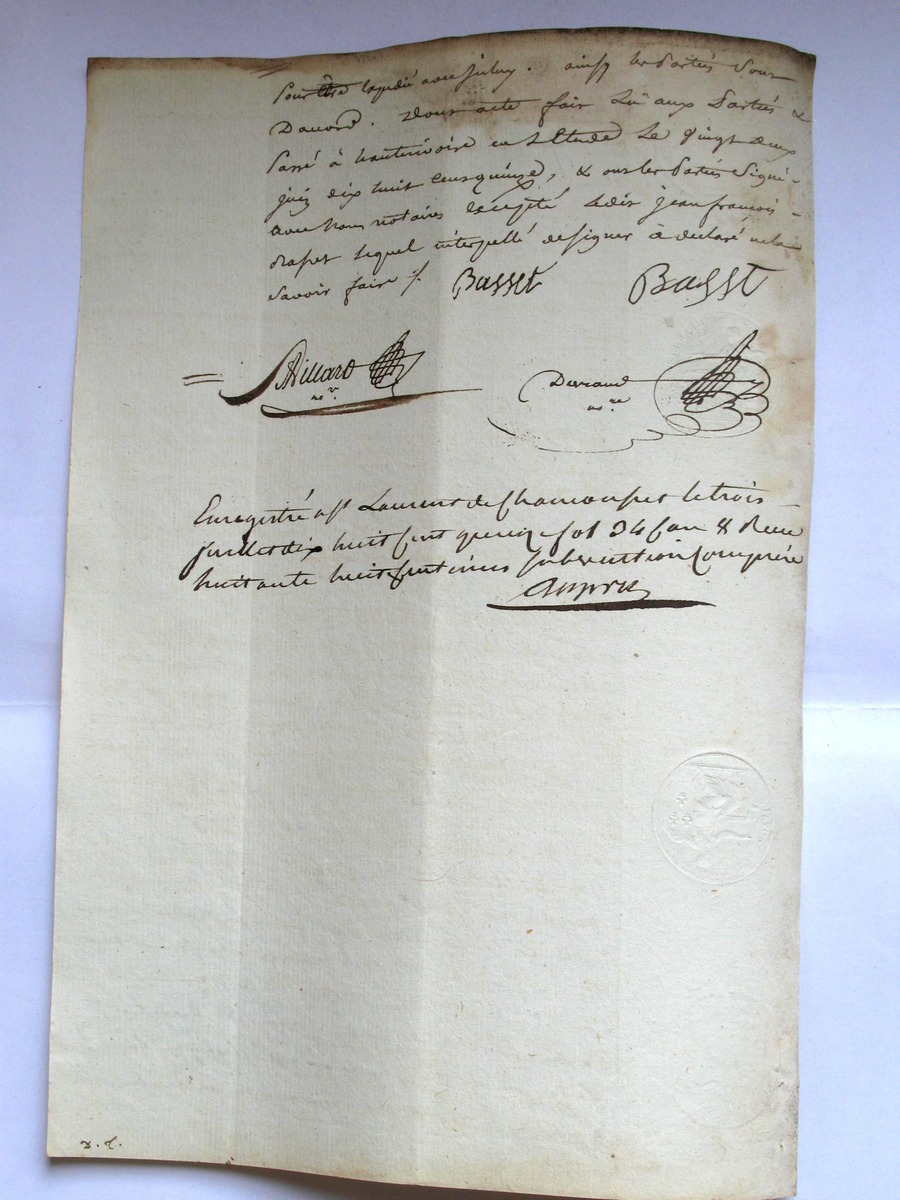 pour être lapidé avec iceluy. ainsy les Parties sont
D'accord. Dont acte fait Lû aux Parties &
Passé à hauterivoire en L'Etude Le Vingt deux
juin dix huit cent quinze, & ont les Parties Signé
avec Nous notaires Excepté Ledit jean françois
lequel interpellé de signer à déclaré ne le
Savoir faire ./.
Basset Basset
Billard
nore
Durand
nore
Enregistré a St Laurent de Chamousset le trois
juillet dix huit cent quinze fol 34 & Recu
huitante huit centimes subvention Comprise